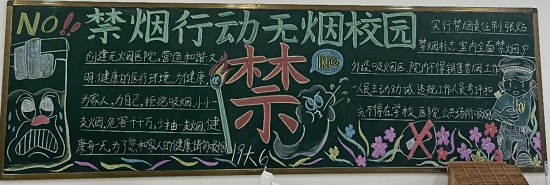 NO!!
禁烟行动无烟校园
创建无烟医院,营造和谐文
明,健康的医疗环境,为健康,
为家人,为自己,拒绝吸烟,小小
支烟,危害千千万,少抽一支烟,健
康每一天,为了您和家人的健康请勿吸烟
禁
No
19大6
实行禁烟责任制张贴
禁烟标志,室内全面禁烟,户
外设吸烟区,院内不得销售烟
工作
人员主动劝诫,违规工作人员考评扣
分不得在学校,医院,公共场所吸烟